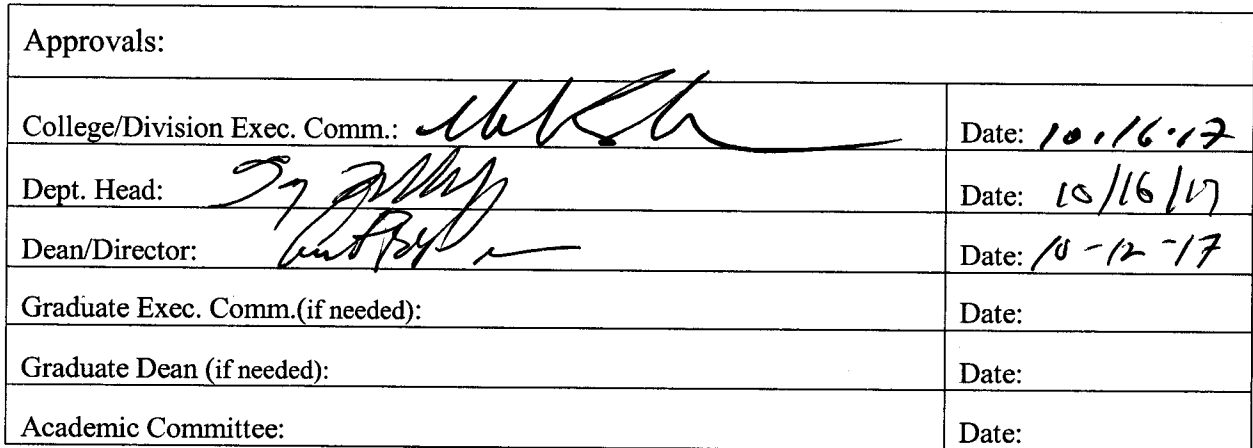 Approvals:
College/Division Exec. Comm.: Date: 10.16.17
Dept. Head: Date: 10/16/17
Dean/Director: Date: 10-12-17
Graduate Exec. Comm.(if needed): Date:
Graduate Dean (if needed): Date:
Academic Committee: Date: